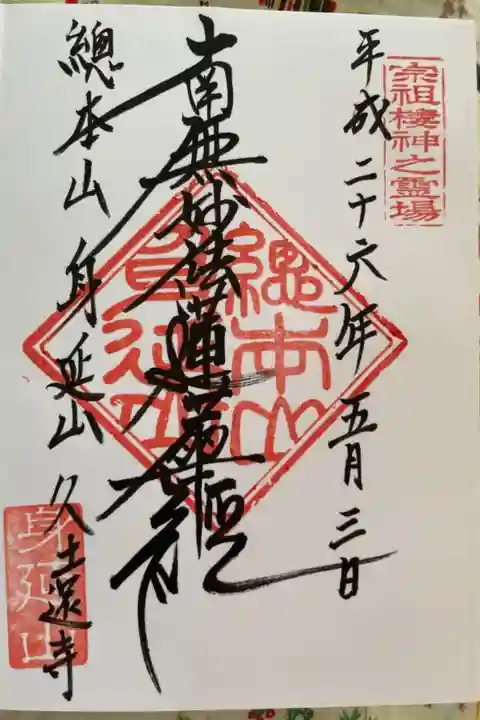 宗祖棲神之霊場
平成二十六年五月三日
南無妙法蓮華経
總本山
身延山
總本山 身延山 久遠寺
身延山